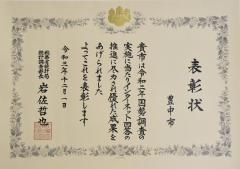 表彰状
豊中市
貴市は令和二年国勢調査の
実施に当たりインターネット回答の
推進に尽力され優れた成果を
あげられました
よってこれを表彰します
令和三年十二月一日
総務省統計局
統計調査部長
岩佐哲也